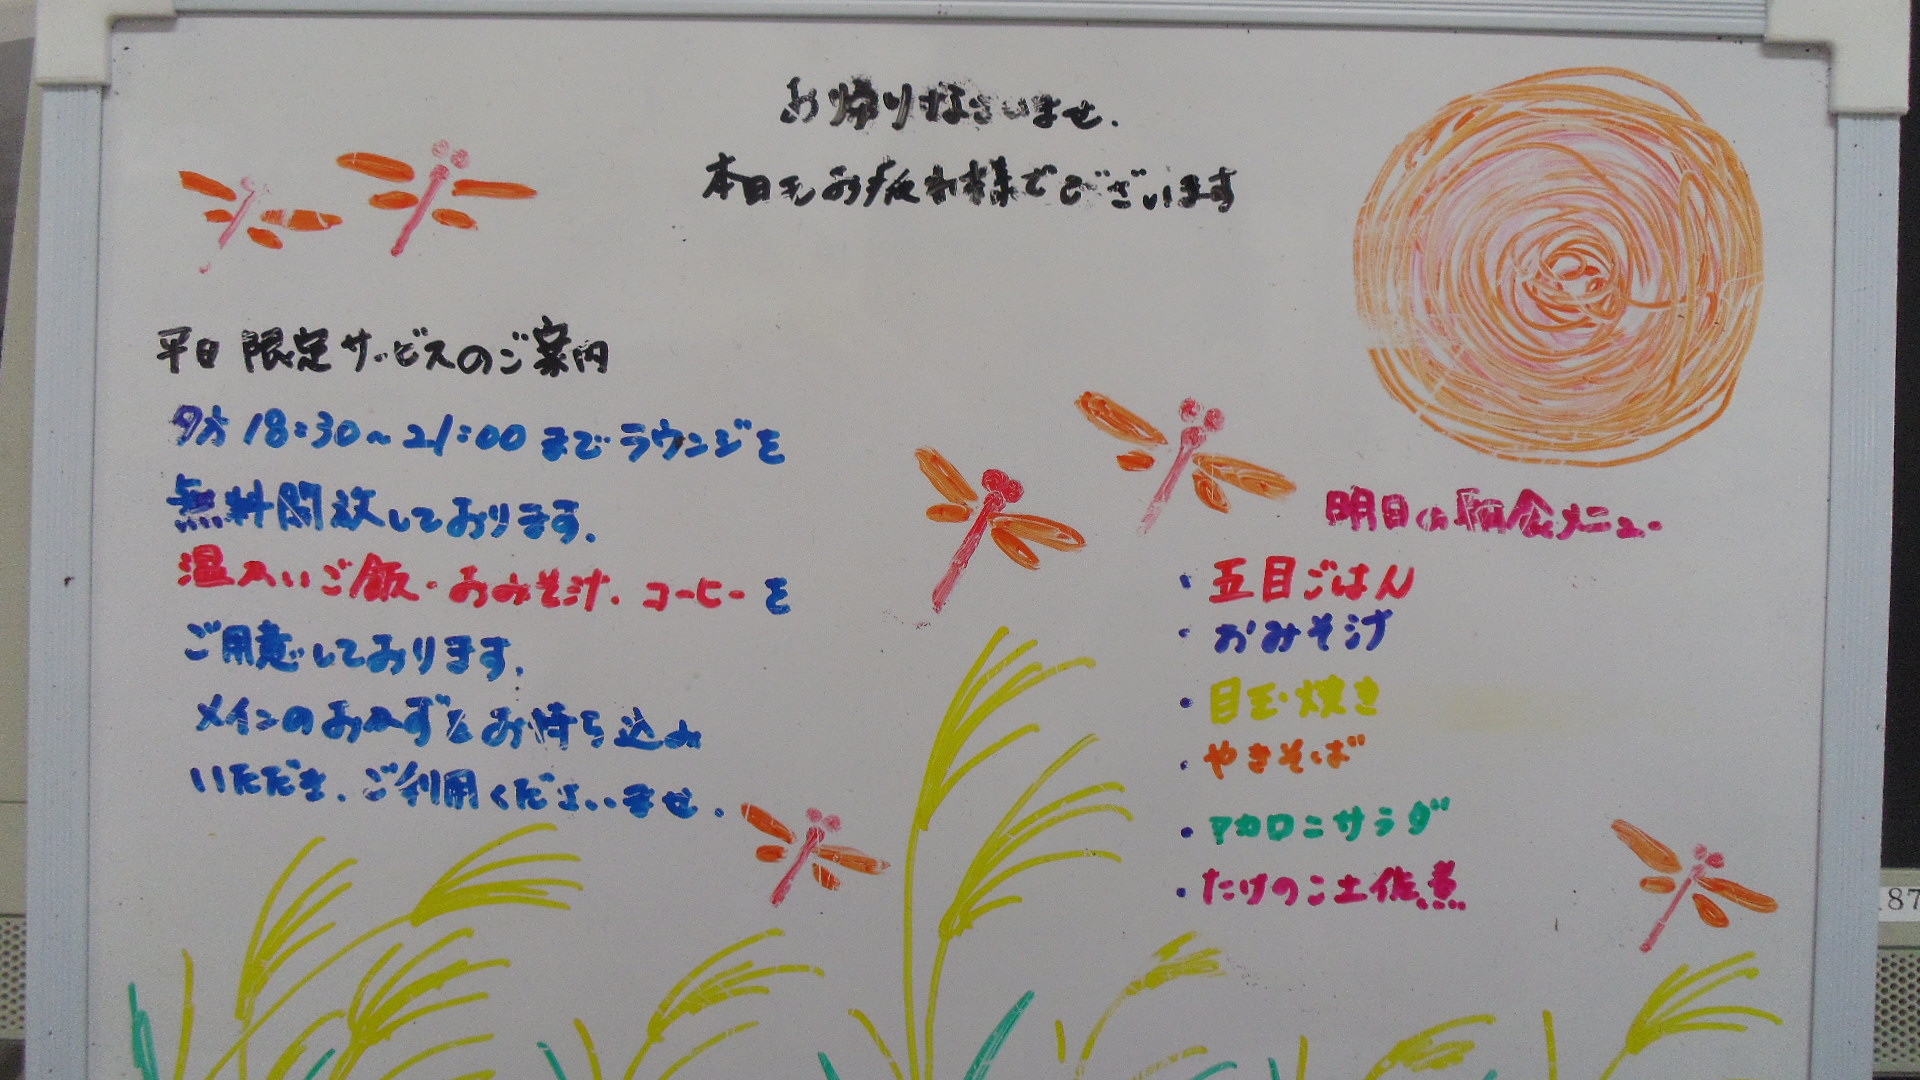 お帰りなさいませ.
本日もお疲れ様でございます
平日限定サービスのご案内
夕方18:30〜21:00までラウンジを
無料開放しております.
温かいご飯・おみそ汁.コーヒーを
ご用意しております.
メインのおかずをお持ち込み
いただき.ご利用くださいませ.
明日の朝食メニュー
・五目ごはん
・おみそ汁
・目玉焼き
・やきそば
・マカロニサラダ
・たけのこ土佐煮
87